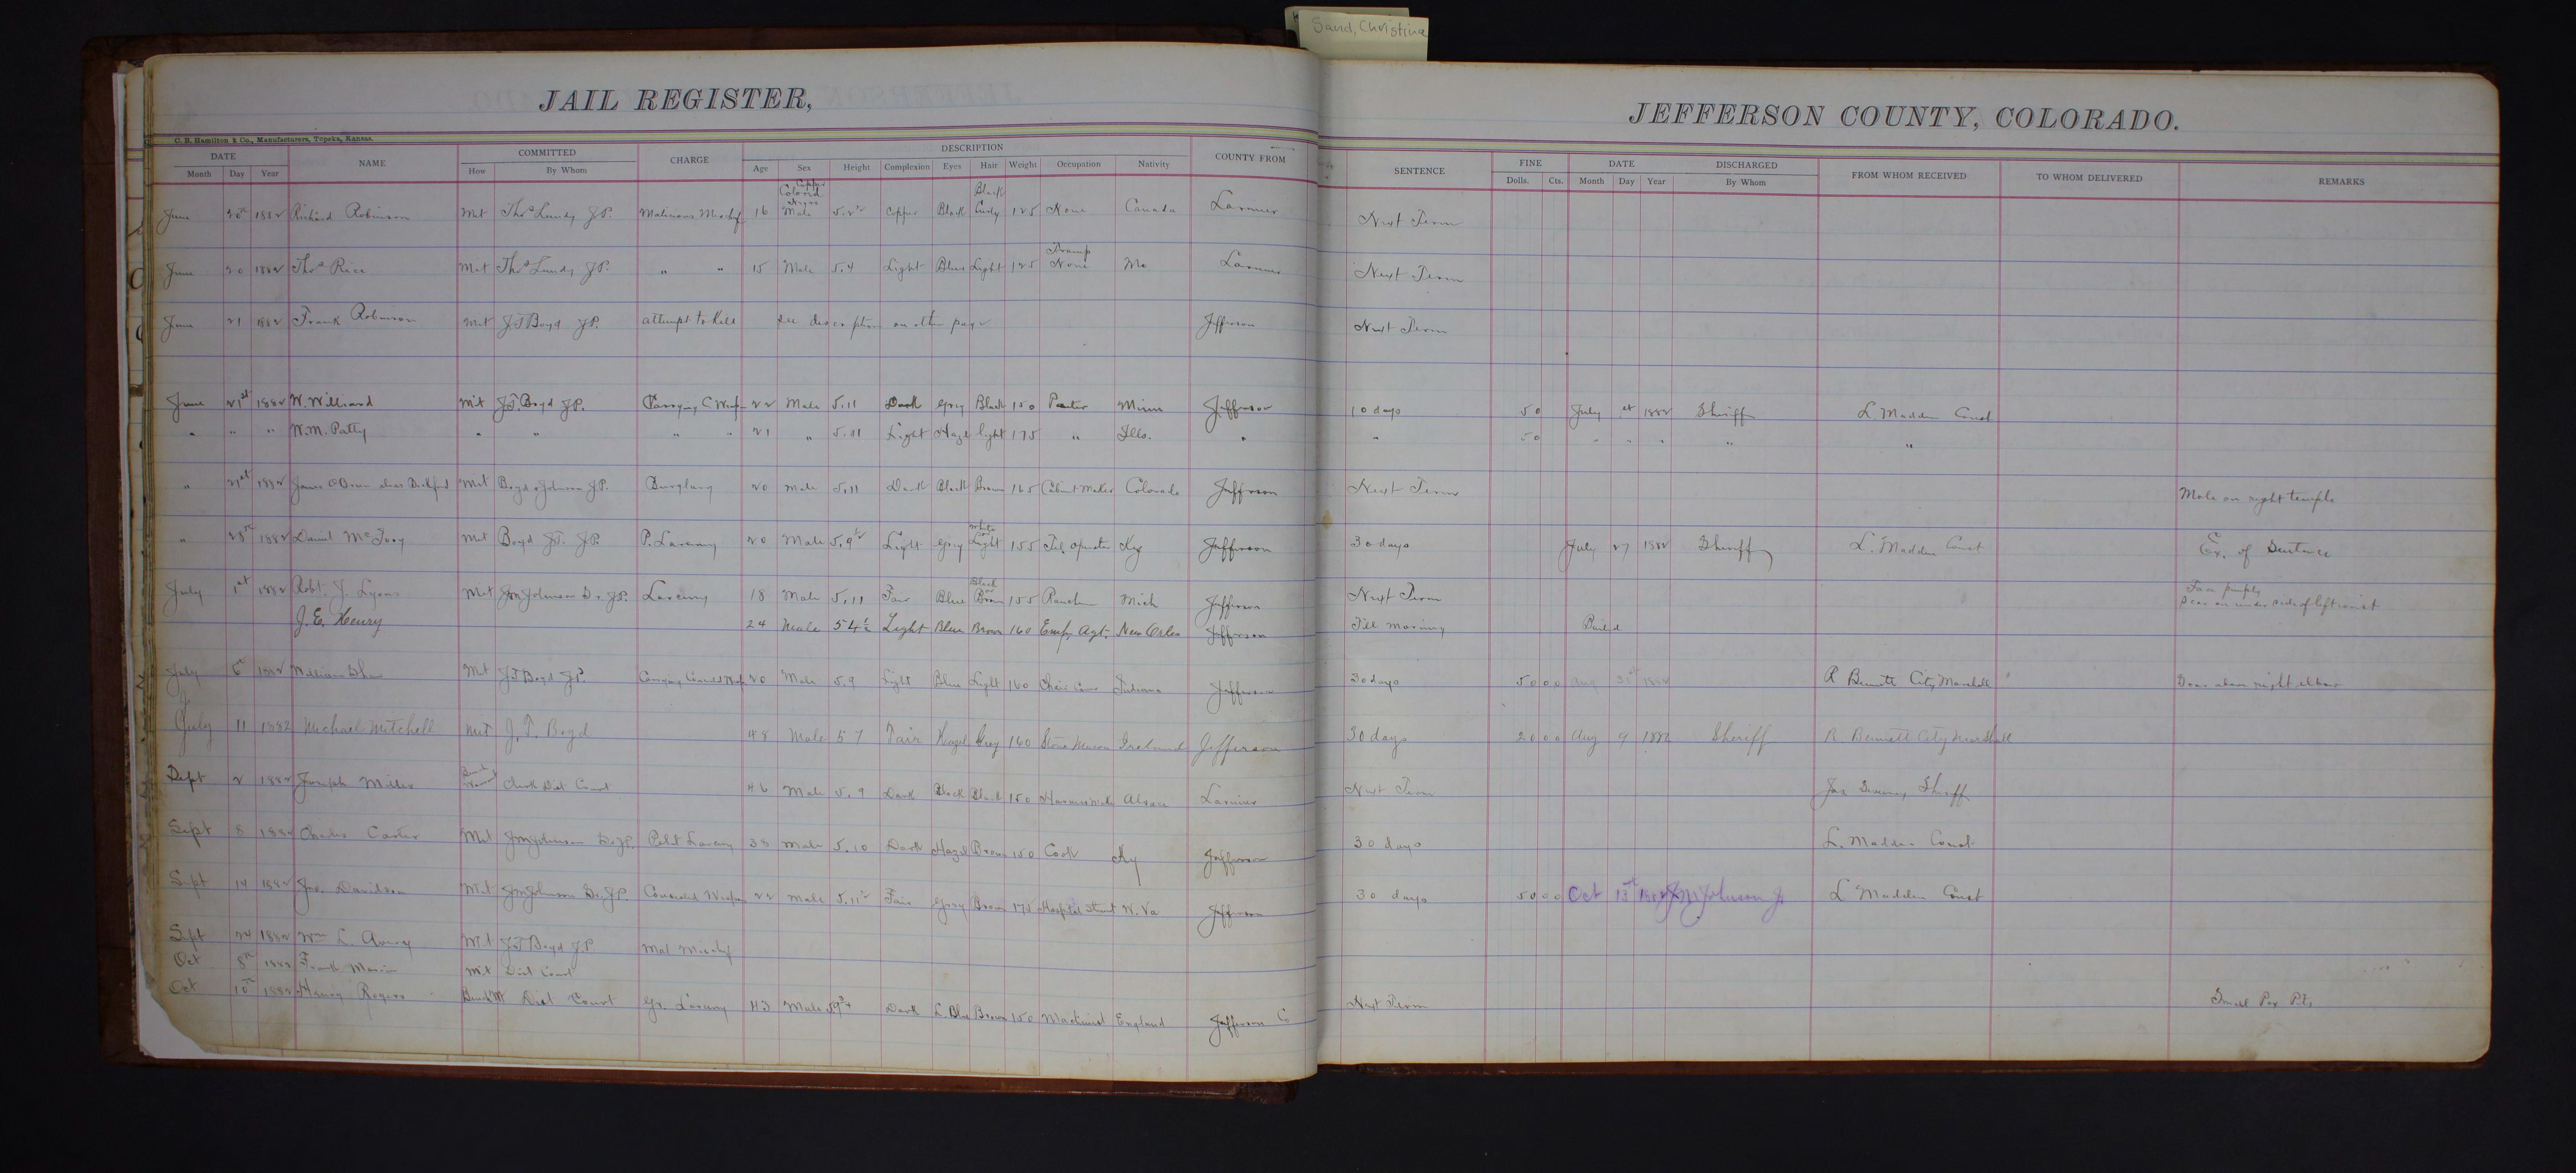 Sand, Christina
JAIL REGISTER,
JEFFERSON COUNTY, COLORADO.
C. B. Hamilton & Co., Manufacturers, Topeka, Kansas.
DATE NAME COMMITTED CHARGE DESCRIPTION COUNTY FROM SENTENCE FINE DATE DISCHARGED FROM WHOM RECEIVED TO WHOM DELIVERED REMARKS
Month Day Year How By Whom Age Sex Height Complexion Eyes Hair Weight Occupation Nativity Dolls. Cts. Month Day Year By Whom
Copper
Colored Black
June 20th 1882 Richard Robinson Mit Thos Lundy J.P. Malicious Mischief 16 Male 5.2½ Copper Black Curly 125 None Canada Larimer Next Term
Tramp
June 20 1882 Thos Rice Mit Thos Lundy J.P. " " 15 Male 5.4 Light Blue Light 125 None Mo Larimer Next Term
June 21 1882 Frank Robinson Mit J T Boyd J.P. attempt to Kill see description on other page Jefferson Next Term
June 21st 1882 W. Williard Mit J.T. Boyd J.P. Carrying C Weap 22 Male 5.11 Dark Grey Black 150 Minn Jefferson 10 days 50 July 1882 Sheriff L. Madden Const
" " " W.M. Patty " " " " 21 " 5.11 Light Hazel light 175 " Ills. " " 50 " " " " "
" 21st 1882 James alias Mit Boyd & Johnson J.P. Burglary 20 Male 5.11 Dark Black Brown 165 Cabinet Maker Colorado Jefferson Next Term Mole on right temple
White or
" 28th 1882 Daniel Mit Boyd J.T. J.P. P. Larceny 20 Male 5.9½ Light Grey Light 155 Tel. operator Ky Jefferson 30 days July 27 1882 Sheriff L. Madden Const Ex. of Sentence
Black or Face pimply
July 1st 1882 Robt. J. Lyons Mit Jm Johnson J.P. Larceny 18 Male 5.11 Fair Blue Brown 155 Mich Jefferson Next Term Scar on under side of left wrist
J. E. Henry 24 Male 5 4½ Light Blue Brown 160 Emp. Agt. New Orles Jefferson Till morning Bailed
July 1882 William Mit J T Boyd J.P. Carrying 20 Male 5.9 Light Blue Light 160 Indiana Jefferson 30 days 50 00 Aug 1882 R Bennett City Marshall Scar above right elbow
July 11 1882 Michael Mitchell Mit J. T. Boyd 48 Male 5 7 Fair Hazel Grey 160 Stone Mason Ireland Jefferson 30 days 20 00 Aug 9 1882 Sheriff R. Bennett City Marshall
Sept 2 1882 Joseph Miller Bench Warrant Clerk Dist Court 46 Male 5.9 Dark Black Black 150 Harness maker Alsace Larimer Next Term Jas Sheriff
Sept 8 1882 Charles Carter Mit Jm Johnson J.P. Petit Larceny 38 Male 5.10 Dark Hazel Brown 150 Cook Ky Jefferson 30 days L. Madden Const
Sept 14 1882 Jno. Davidson Mit Jm Johnson J.P. Concealed Weapons 22 Male 5.11½ Fair Grey Brown 171 Hospital W. Va Jefferson 30 days 50 00 Oct 13th 1882 J M Johnson L Madden Const
Sept 24 1882 Wm L. Avery Mit J T Boyd J.P. Mal Mischief
Oct 8th 1882 Frank Mit Dist Court
Oct 10th 1882 Henry Rogers Bench W Dist Court Gr. Larceny 43 Male 5.9¾ Dark L. Blue Brown 150 Machinist England Jefferson Co Next Term Small Pox Pits